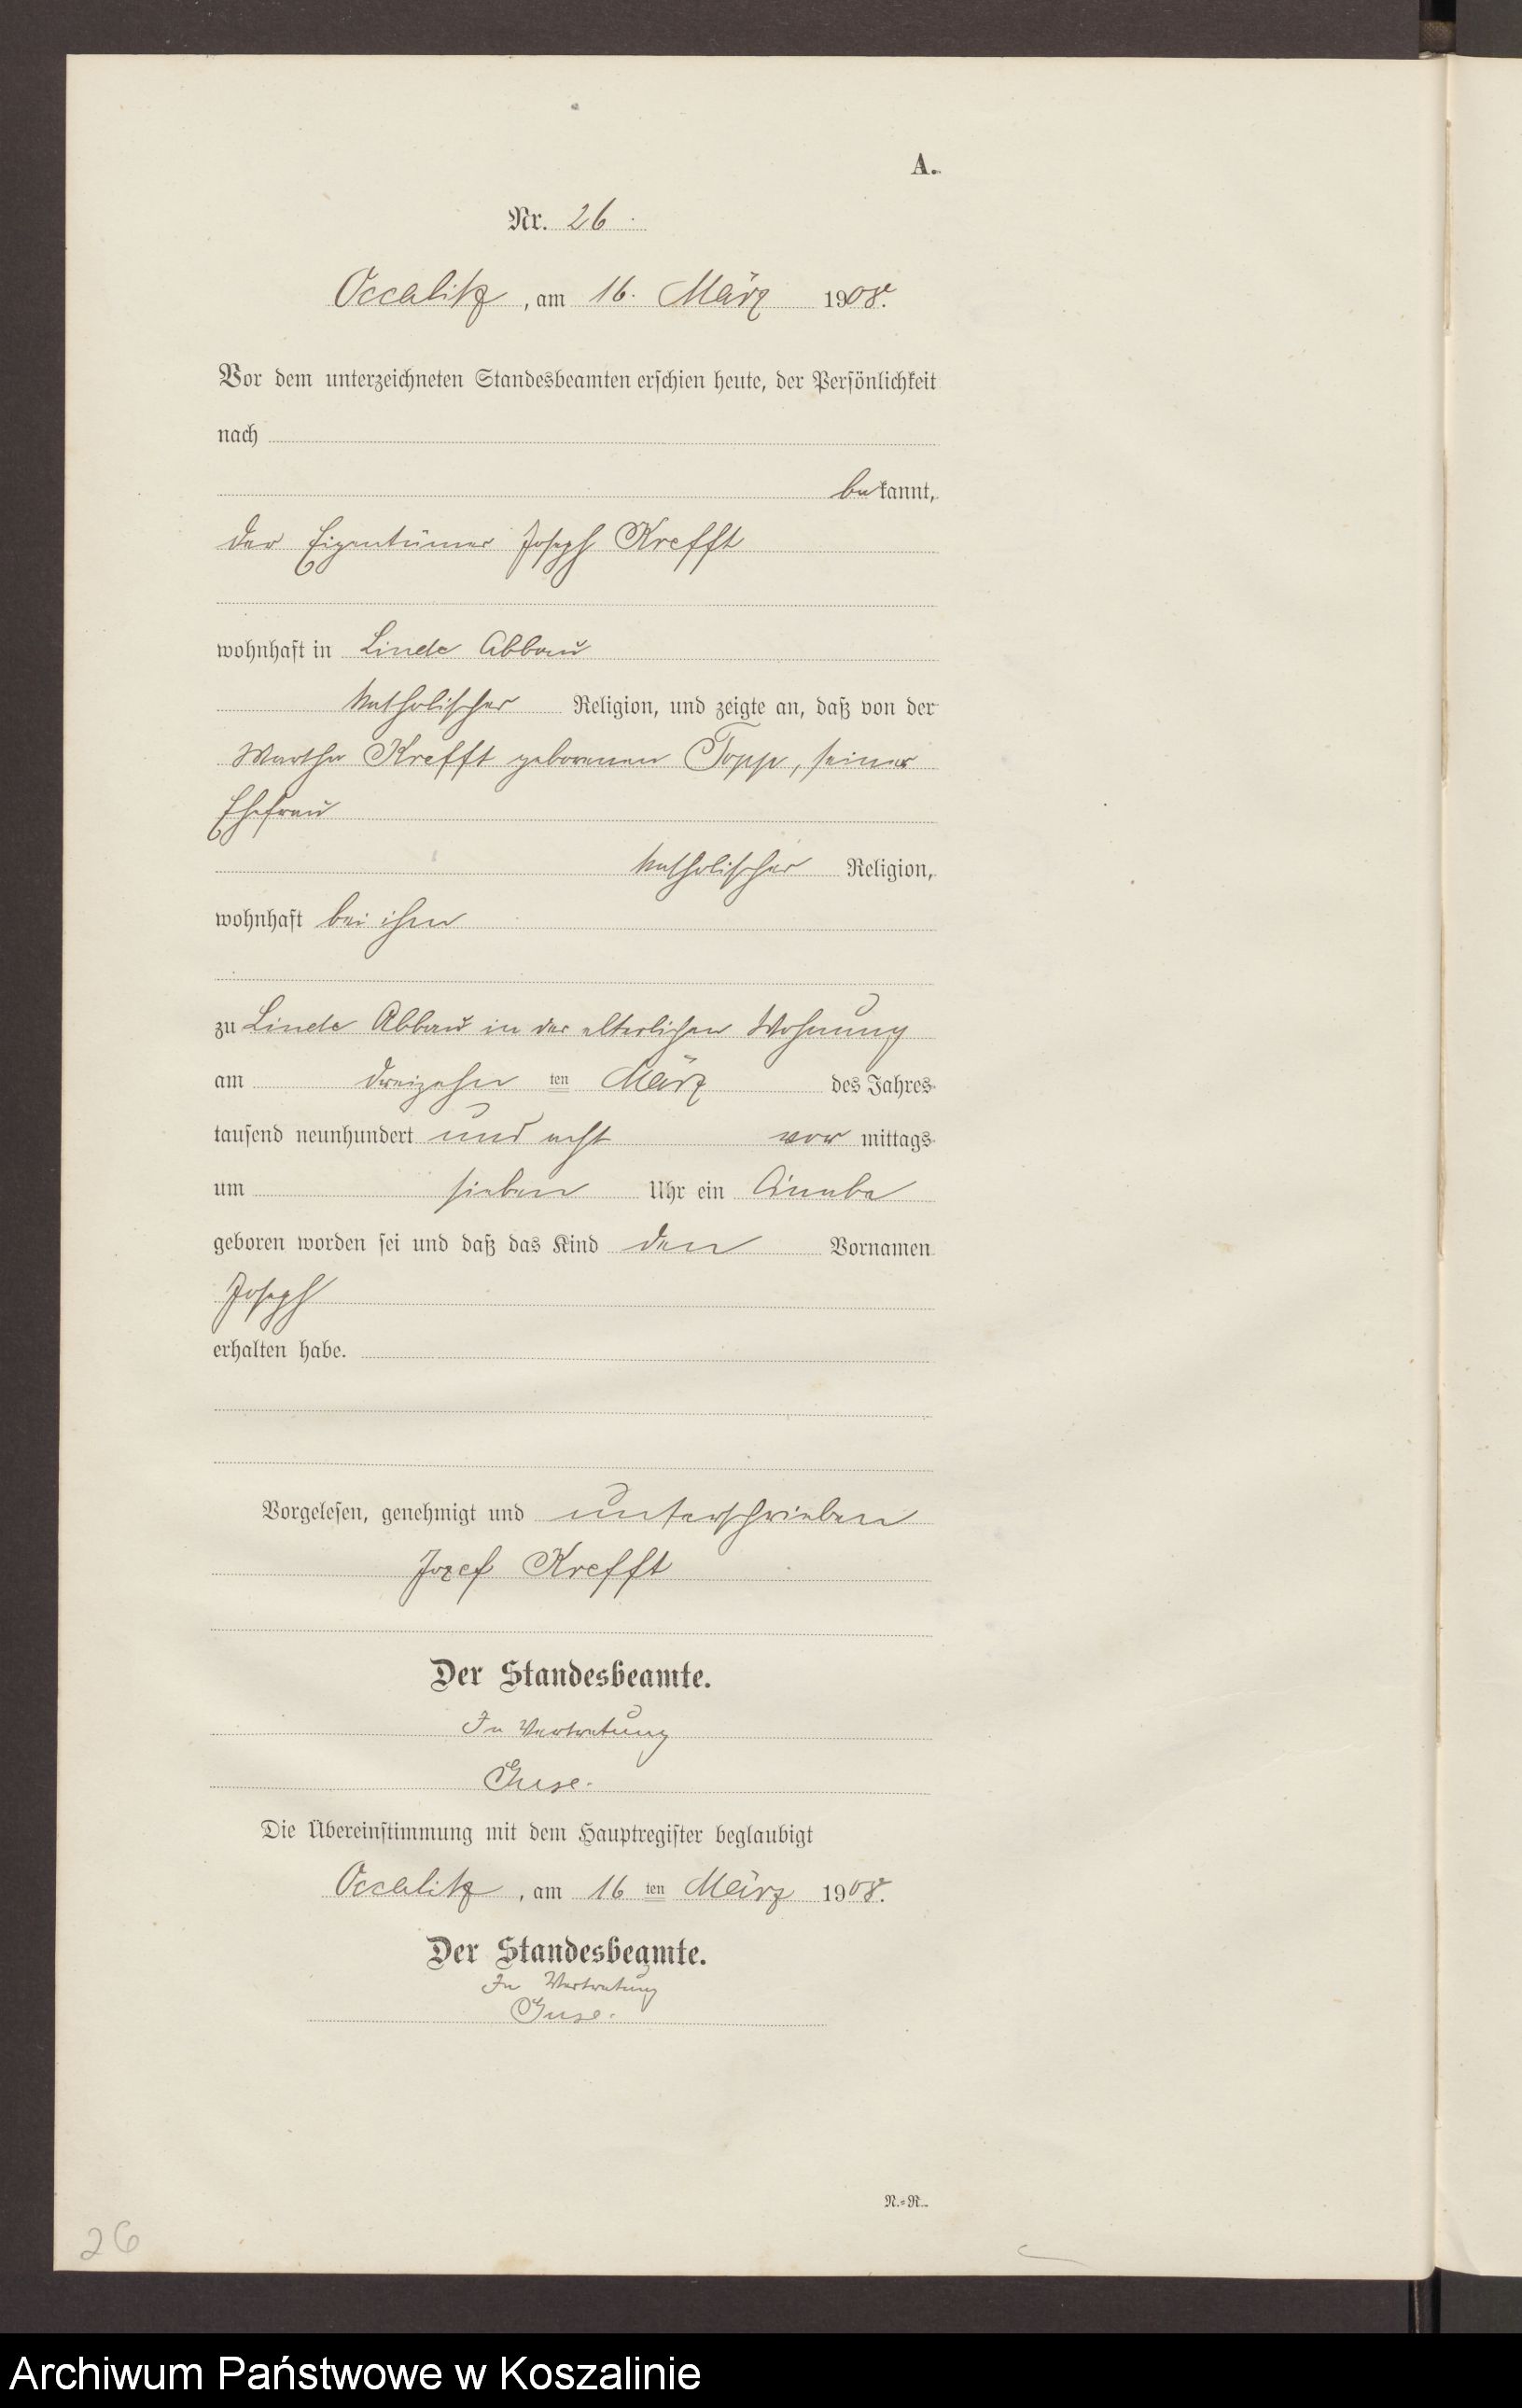 A.
Nr. 26.
Occalitz, am 16. März 1908.
Vor dem unterzeichneten Standesbeamten erschien heute, der Persönlichkeit
nach
bekannt,
der Eigentümer Joseph Krefft
wohnhaft in Linde Abbau
katholischer Religion, und zeigte an, daß von der
Martha Krefft geborenen Topp, seiner
Ehefrau
katholischer Religion,
wohnhaft bei ihm
zu Linde Abbau in der elterlichen Wohnung
am dreizehn ten März des Jahres
tausend neunhundert und acht vor mittags
um sieben Uhr ein Knabe
geboren worden sei und daß das Kind den Vornamen
Joseph
erhalten habe.
Vorgelesen, genehmigt und unterschrieben
Jozef Krefft
Der Standesbeamte.
In Vertretung
Guse.
Die Übereinstimmung mit dem Hauptregister beglaubigt
Occalitz, am 16 ten März 1908.
Der Standesbeamte.
In Vertretung
Guse.
R.=R.
26
Archiwum Państwowe w Koszalinie